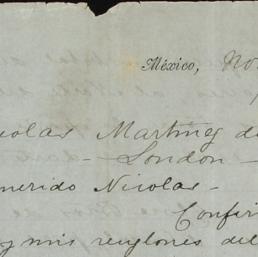 México, No
icolas Martinez de
— London —
uerido Nicolas —
Confir
y mis renglones del